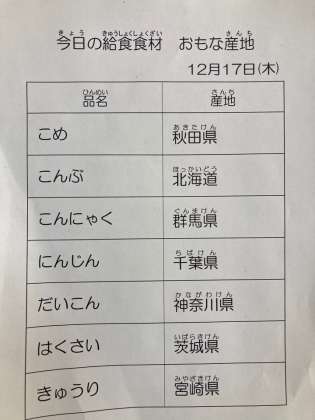 今日の給食食材　おもな産地
12月17日(木)
品名　産地
こめ　秋田県
こんぶ　北海道
こんにゃく　群馬県
にんじん　千葉県
だいこん　神奈川県
はくさい　茨城県
きゅうり　宮崎県